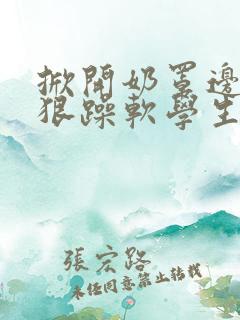 掀開奶罩邊
狠躁軟學生
張宏路
未任同意禁止转載